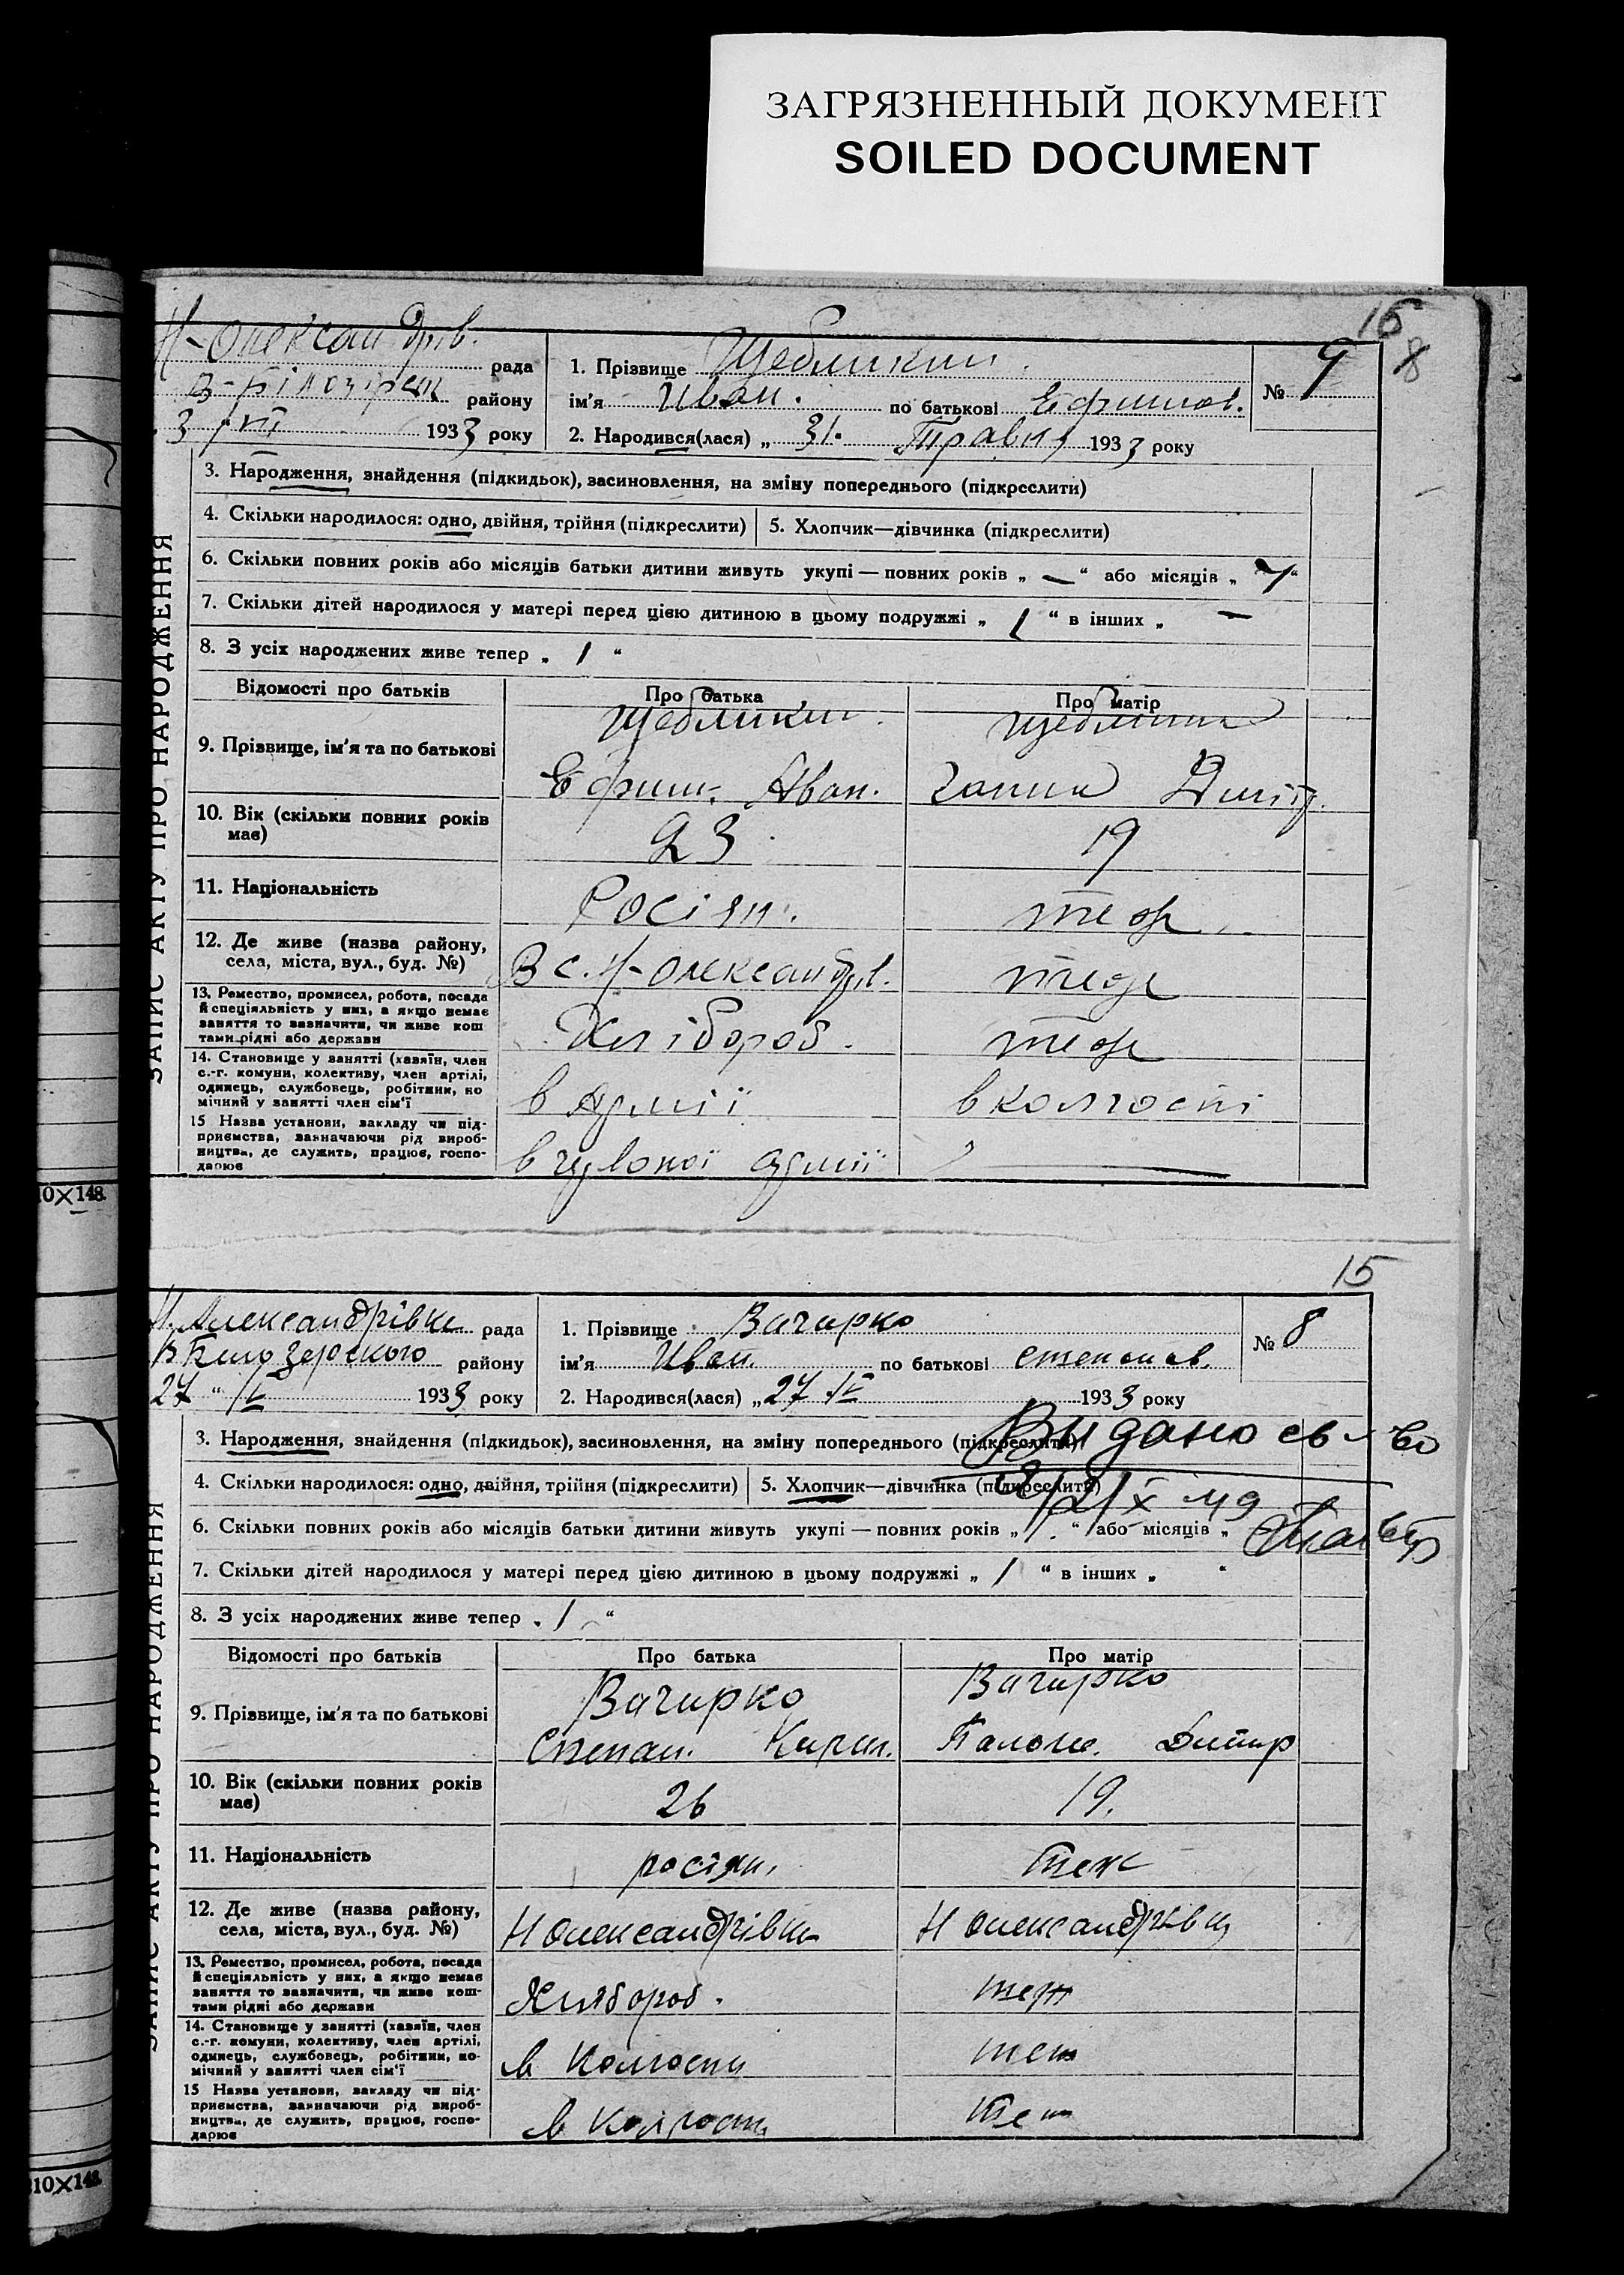 ЗАГРЯЗНЕННЫЙ ДОКУМЕНТ
SOILED DOCUMENT
15
8
ЗАПИС АКТУ ПРО НАРОДЖЕННЯ
Н-Олександрів. рада
В-Білозірськ району
3 / VI 1933 року
1. Прізвище Щебликин
ім'я Иван. по батькові Ефимов.
№ 9
2. Народився(лася) „ 31. Травня 1933 року
3. Народження, знайдення (підкидьок), засиновлення, на зміну попереднього (підкреслити)
4. Скільки народилося: одно, двійня, трійня (підкреслити) 5. Хлопчик—дівчинка (підкреслити)
6. Скільки повних років або місяців батьки дитини живуть укупі — повних років „ — “ або місяців „ “
7. Скільки дітей народилося у матері перед цією дитиною в цьому подружжі „ 1 “ в інших „ —
8. З усіх народжених живе тепер „ 1 “
Відомості про батьків Про батька Про матір
9. Прізвище, ім'я та по батькові
Щебликин.
Ефим. Иван.
Ганна Дмитр.
10. Вік (скільки повних років має) 23 19
11. Національність Росіян. теж
12. Де живе (назва району, села, міста, вул., буд. №) В с. Н-Олександрів. теж
13. Ремество, промисел, робота, посада
й спеціяльність у них, а якщо немає
заняття то зазначити, чи живе кош
тами рідні або держави
Хлібороб. теж
14. Становище у занятті (хазяїн, член
с.-г. комуни, колективу, член артілі,
одинець, службовець, робітник, по
мічний у занятті член сім'ї
в Армії в колгоспі
15 Назва установи, закладу чи під-
приємства, зазначаючи рід вироб-
ництва, де служить, працює, госпо-
дарює
в червоної армії —
10×148.
15
ЗАПИС АКТУ ПРО НАРОДЖЕННЯ
Н. Александрівка рада
В Білозерского району
27 “ IV 1933 року
1. Прізвище Вачирко
ім'я Иван. по батькові степанов.
№ 8
2. Народився(лася) „ 27 IV 1933 року
3. Народження, знайдення (підкидьок), засиновлення, на зміну попереднього (підкреслити)
Выдано св-во
4. Скільки народилося: одно, двійня, трійня (підкреслити) 5. Хлопчик—дівчинка (підкреслити)
21/X 49
6. Скільки повних років або місяців батьки дитини живуть укупі — повних років „ 1. “ або місяців „
7. Скільки дітей народилося у матері перед цією дитиною в цьому подружжі „ 1 “ в інших „ “
8. З усіх народжених живе тепер „ 1 “
Відомості про батьків Про батька Про матір
9. Прізвище, ім'я та по батькові
Вачирко Вачирко
Степан. Кирил. Палаж. Дмитр
10. Вік (скільки повних років має) 26 19.
11. Національність росіян. теж
12. Де живе (назва району, села, міста, вул., буд. №) Н Олександрівка Н Олександрівка
13. Ремество, промисел, робота, посада
й спеціяльність у них, а якщо немає
заняття то зазначити, чи живе кош-
тами рідні або держави
Хлібороб. теж
14. Становище у занятті (хазяїн, член
с.-г. комуни, колективу, член артілі,
одинець, службовець, робітник, по-
мічний у занятті член сім'ї
в Колгоспи теж
15 Назва установи, закладу чи під-
приємства, зазначаючи рід вироб-
ництва, де служить, працює, госпо-
дарює
в Колгоспи теж
210×148.